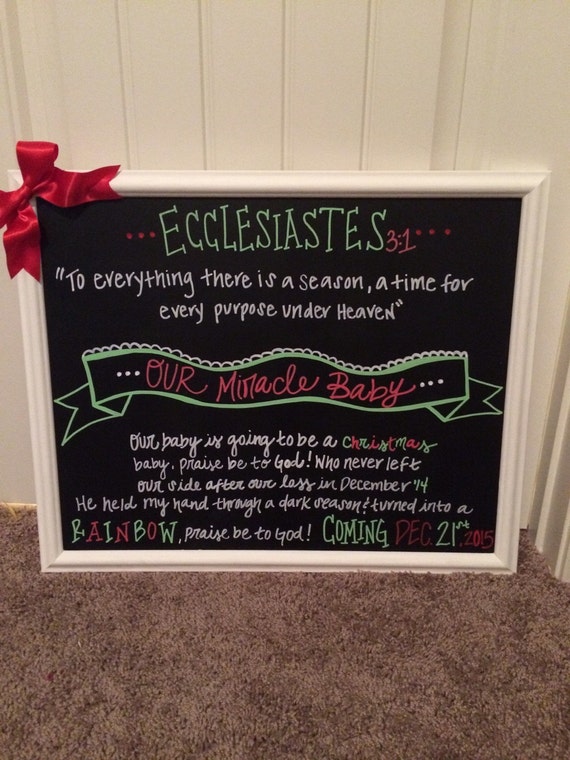 ...ECCLESIASTES 3:1...
"To everything there is a season, a time for
every purpose under Heaven"
...OUR Miracle Baby...
Our baby is going to be a christmas
baby, praise be to God! Who never left
our side after our loss in December '14
He held my hand through a dark season & turned into a
RAINBOW, praise be to God! COMING DEC. 21st, 2015